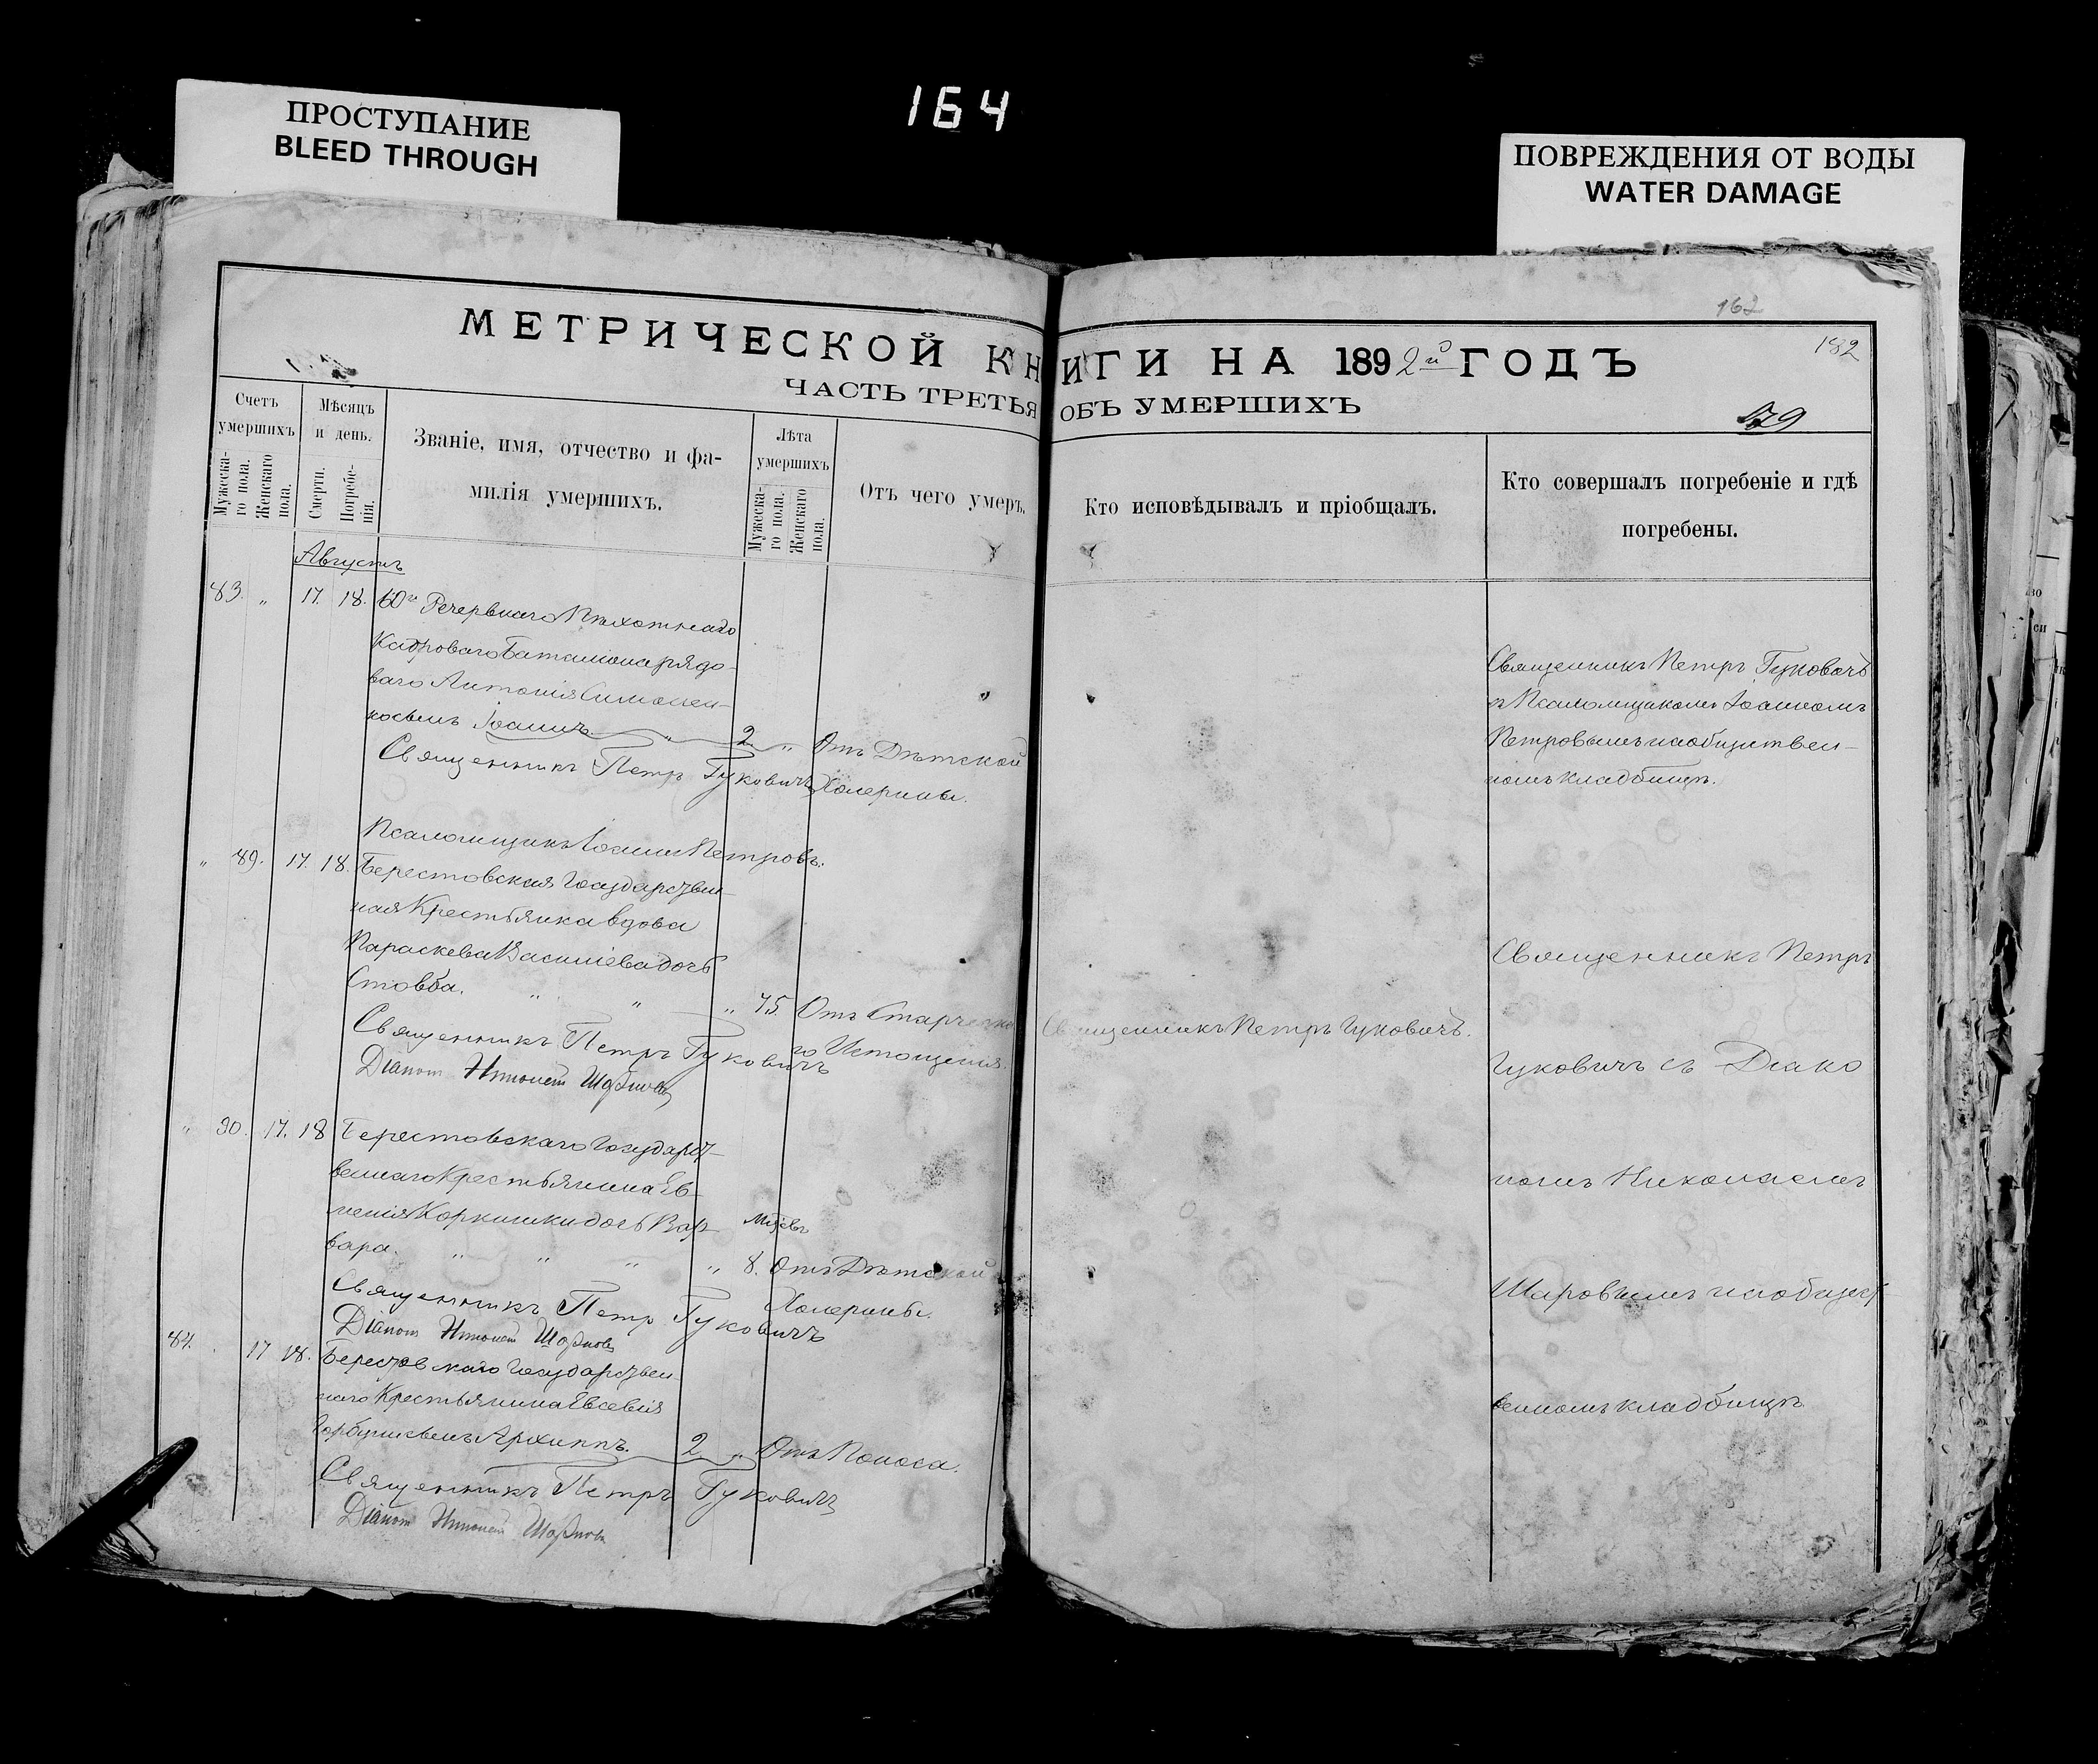 ПРОСТУПАНИЕ
BLEED THROUGH
164
ПОВРЕЖДЕНИЯ ОТ ВОДЫ
WATER DAMAGE
162
182
МЕТРИЧЕСКОЙ КНИГИ НА 1892й ГОДЪ
ЧАСТЬ ТРЕТЬЯ ОБЪ УМЕРШИХЪ
Счетъ умершихъ
Мужеска-го пола.
Женскаго пола.
Мѣсяцъ и день.
Смерти.
Погребе-нія.
Званіе, имя, отчество и фа-
милія умершихъ.
Лѣта умершихъ
Мужеска-го пола.
Женскаго пола.
Отъ чего умеръ.
Кто исповѣдывалъ и пріобщалъ.
Кто совершалъ погребеніе и гдѣ
погребены.
Августъ
83. „ 17. 18. 60го Резервнаго Пѣхотнаго
Кадроваго Баталіона рядо-
ваго Антонія Симонен-
ко сынъ Іоаннъ. „ 2 „ Отъ Дѣтской
Холерины.
Священникъ Петръ Гуковичъ
Псаломщикъ Іоаннъ Петровъ.
Священникъ Петръ Гуковичъ
съ Псаломщикомъ Іоанномъ
Петровымъ на обществен-
номъ кладбищѣ.
„ 89. 17. 18. Берестовская Государствен-
ная Крестьянка вдова
Параскева Василіева дочь
Стовба. „ „ „ 75. Отъ Старческа
го Истощенія.
Священникъ Петръ Гуковичъ
Діаконъ Николай
Священникъ Петръ Гуковичъ.
„ 90. 17. 18 Берестовскаго Государст-
веннаго Крестьянина Ев-
менія дочь Вар-
вара. „ „ „ „ Мѣсяцъ 8. Отъ Дѣтской
Холерины.
Священникъ Петръ Гуковичъ
Діаконъ Николай
84. 17 18. Берестовскаго Государствен
наго Крестьянина Евсевія
сынъ Архиппъ. 2 „ Отъ Поноса.
Священникъ Петръ Гуковичъ
Діаконъ Николай
Священникъ Петръ
Гуковичъ съ Діако
номъ Николаемъ
Шаровымъ на общест-
венномъ кладбищѣ